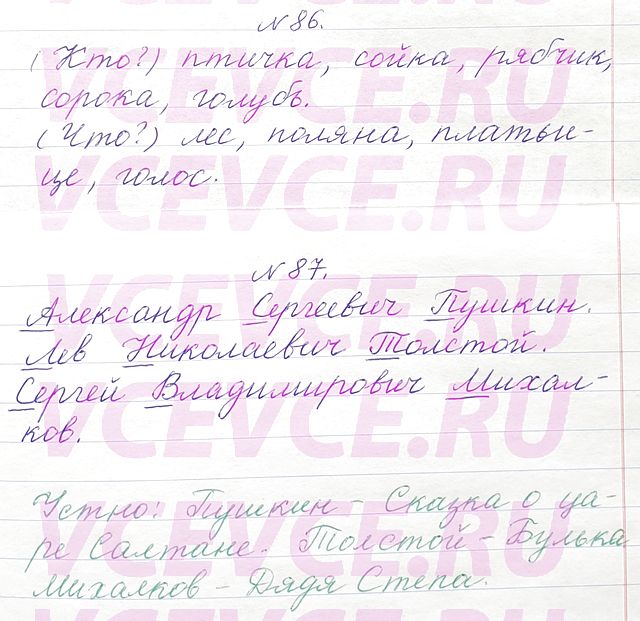 № 86.
(Кто?) птичка, сойка, рябчик,
сорока, голубь.
(Что?) лес, поляна, платьи-
це, голос.
№ 87.
Александр Сергеевич Пушкин.
Лев Николаевич Толстой.
Сергей Владимирович Михал-
ков.
Устно: Пушкин - Сказка о ца-
ре Салтане. Толстой - Булька
Михалков - Дядя Степа.
VCEVCE.RU
VCEVCE.RU
VCEVCE.RU
VCEVCE.RU
VCEVCE.RU
VCEVCE.RU